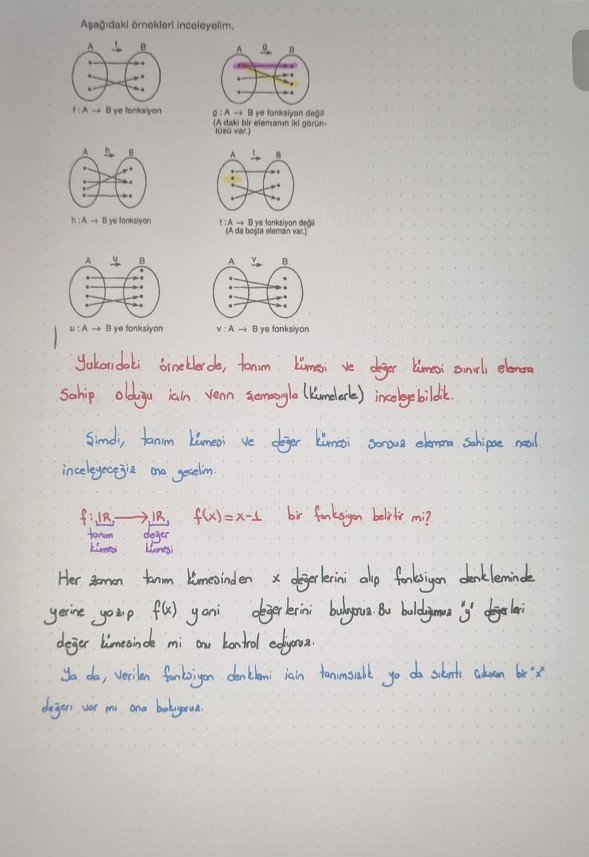 Aşağıdaki örnekleri inceleyelim.
A f B
A g B
f : A → B ye fonksiyon
g : A → B ye fonksiyon değil
(A daki bir elemanın iki görün-
tüsü var.)
A h B
A t B
h : A → B ye fonksiyon
t : A → B ye fonksiyon değil
(A da boşta eleman var.)
A u B
A v B
u : A → B ye fonksiyon
v : A → B ye fonksiyon
Yukarıdaki örneklerde, tanım kümesi ve değer kümesi sınırlı elemana
sahip olduğu için venn şemasıyla (kümelerle) inceleyebildik.
Şimdi, tanım kümesi ve değer kümesi sonsuz elemana sahipse nasıl
inceleyeceğiz ona geçelim.
f: IR → IR f(x) = x-1 bir fonksiyon belirtir mi?
tanım değer
kümesi kümesi
Her zaman tanım kümesinden x değerlerini alıp fonksiyon denkleminde
yerine yazıp f(x) yani değerlerini buluyoruz. Bu bulduğumuz "y" değerleri
değer kümesinde mi onu kontrol ediyoruz.
Ya da, verilen fonksiyon denklemi için tanımsızlık ya da sıkıntı çıkaran bir "x"
değeri var mı ona bakıyoruz.